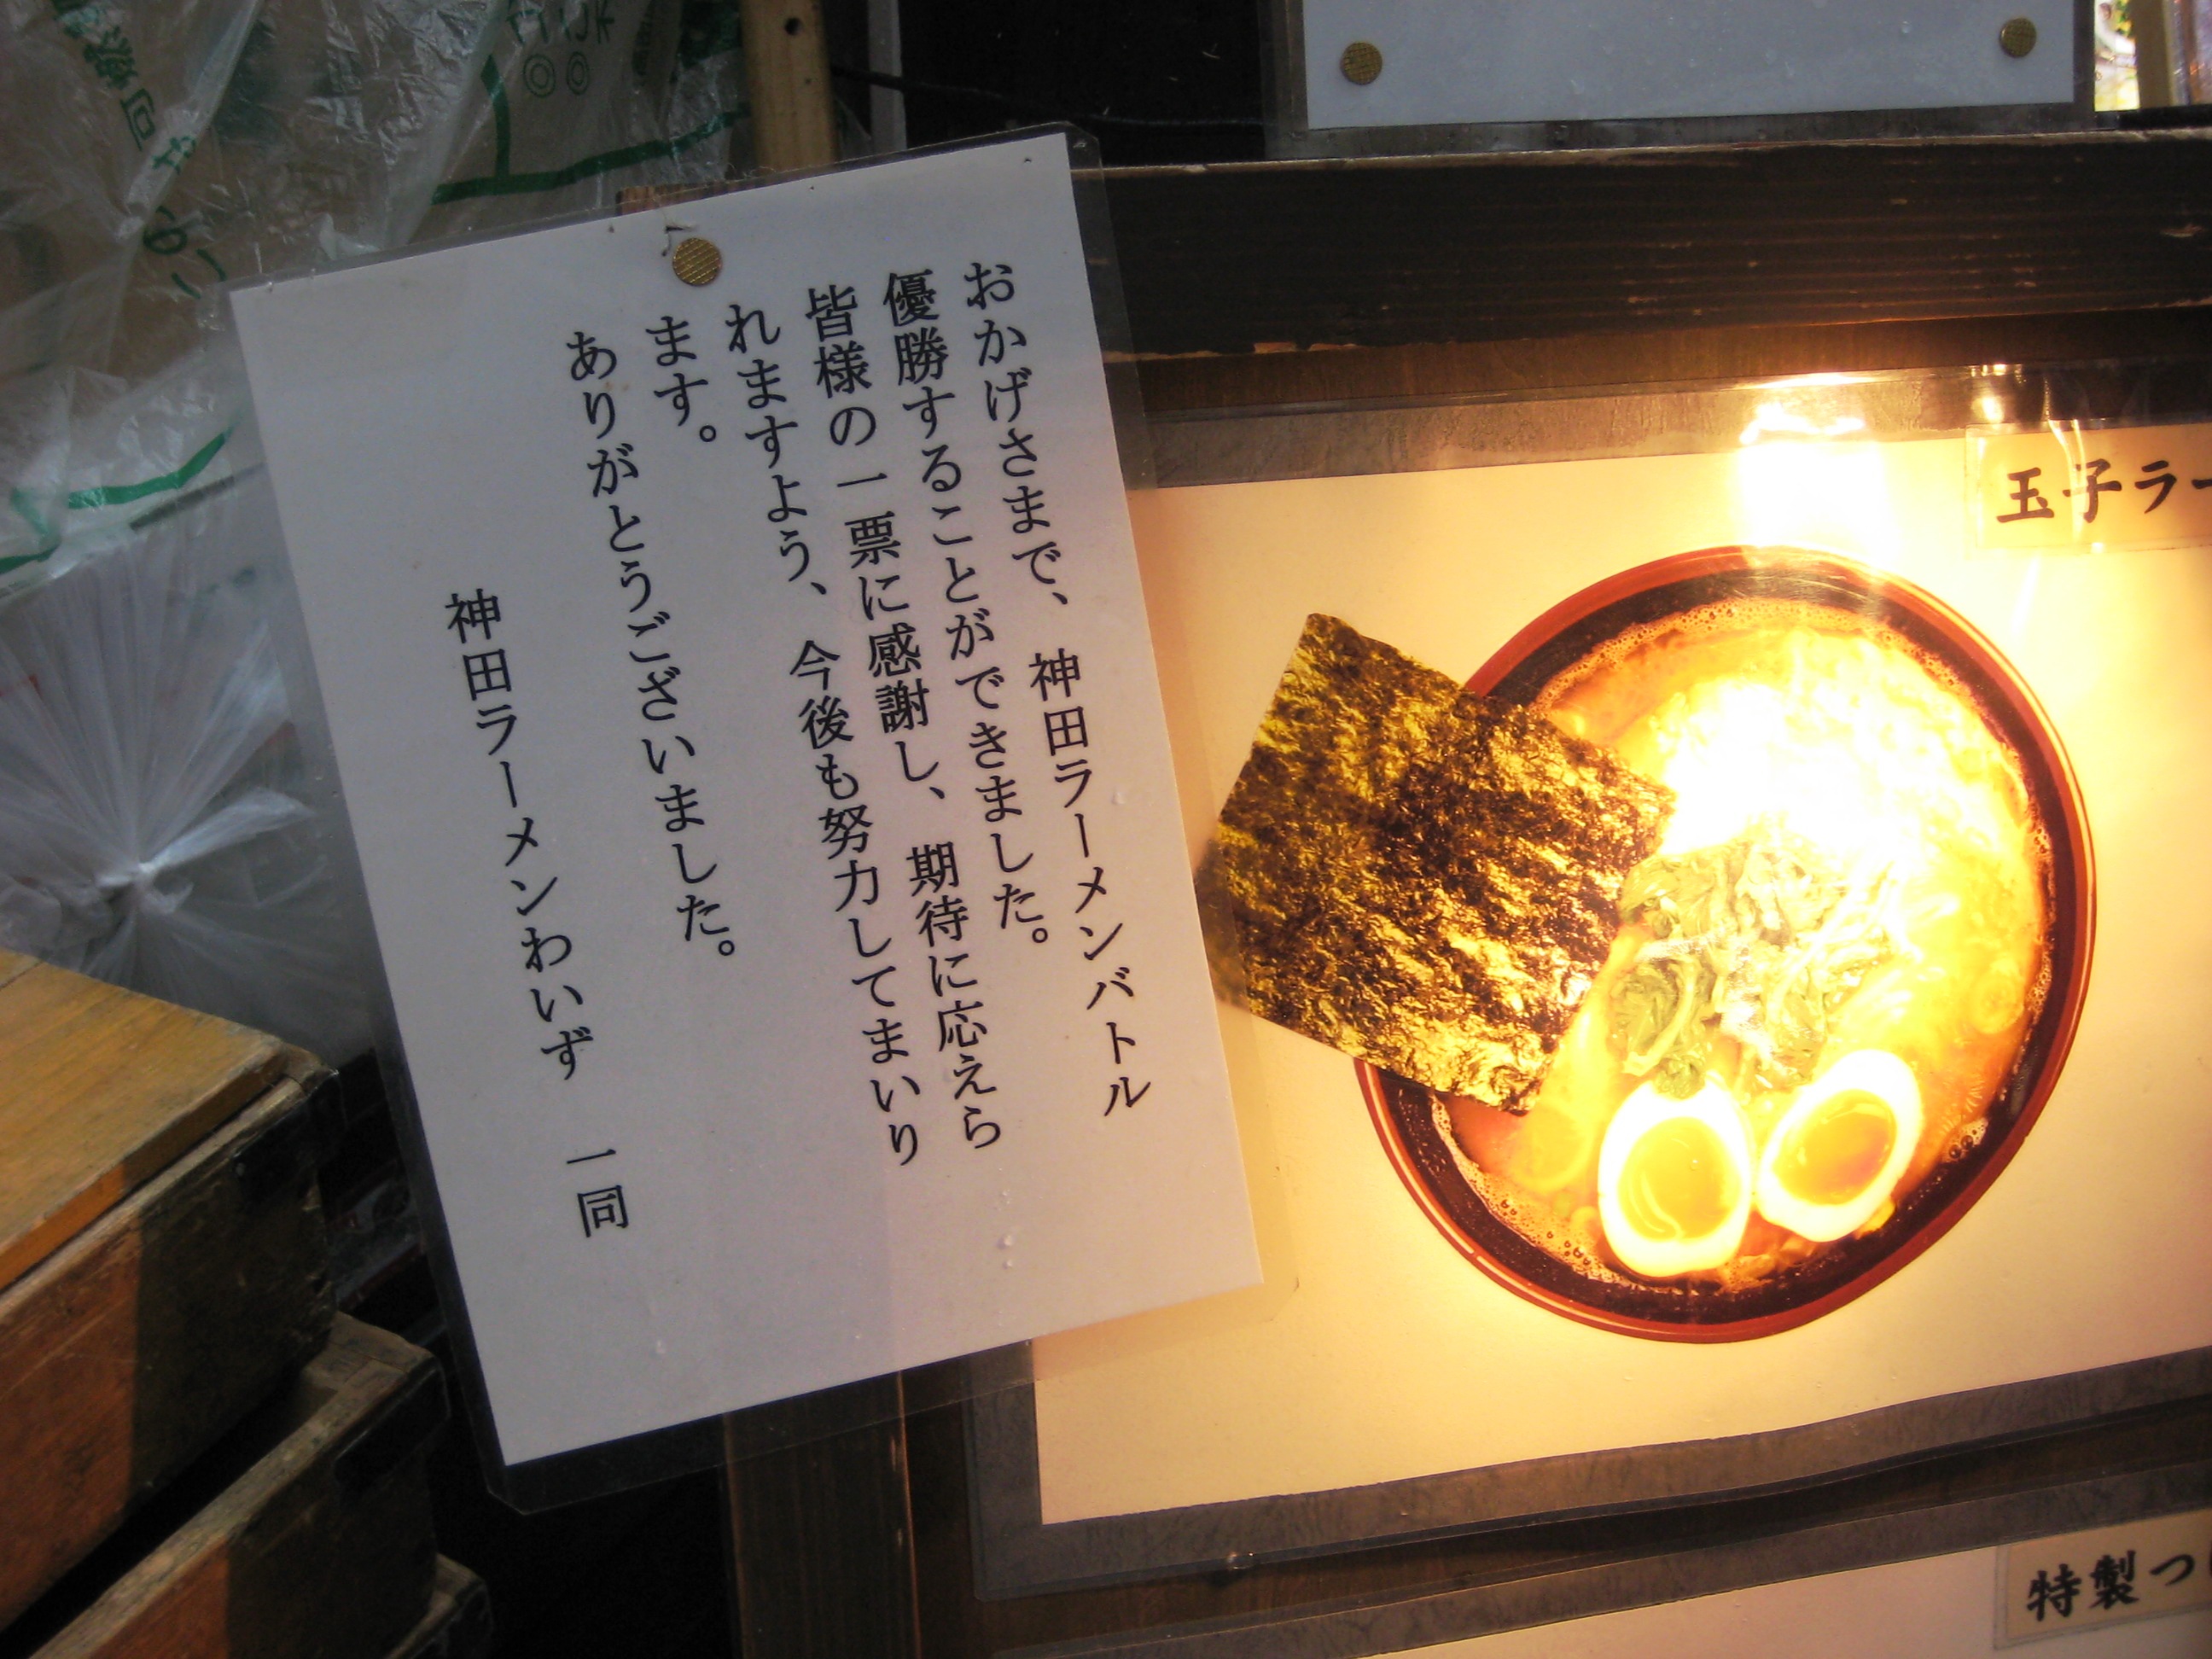 おかげさまで、神田ラーメンバトル
優勝することができました。
皆様の一票に感謝し、期待に応えら
れますよう、今後も努力してまいり
ます。
ありがとうございました。
神田ラーメンわいず　一同
玉子ラー
特製つ